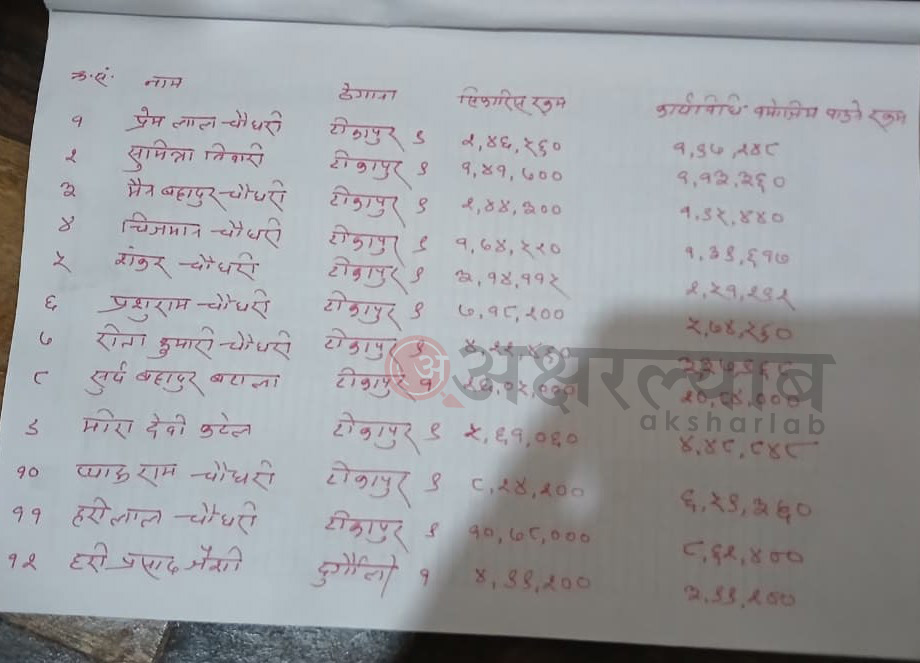 क्र.सं. नाम ठेगाना सिफारिस रकम कार्यविधि बमोजिम पाउने रकम
१ प्रेम लाल चौधरी टीकापुर ९ २,४६,५६० १,९७,२४८
२ सुमित्रा तिवारी टीकापुर ९ १,४१,७०० १,१३,३६०
३ मैन बहादुर चौधरी टीकापुर ९ २,४४,३०० १,९५,४४०
४ चौधरी टीकापुर ९ १,७४,५२० १,३९,६१७
५ शंकर चौधरी टीकापुर ९ ३,१४,११५ २,५१,२९२
६ प्रशुराम चौधरी टीकापुर ९ ७,१८,२०० ५,७४,५६०
७ सीता कुमारी चौधरी टीकापुर ९
८ सुर्य बहादुर बटाला टीकापुर १ २६,०५,००० २०,८४,०००
९ मिरा देवी कटेल टीकापुर ९ ५,६१,०६० ४,४८,८४८
१० प्यारु राम चौधरी टीकापुर ९ ८,२४,२०० ६,५९,३६०
११ हरीलाल चौधरी टीकापुर ९ १०,७८,००० ८,६२,४००
१२ हरी प्रसाद जैशी दुर्गौली १ ४,९९,२००
अक्षरल्याब
aksharlab